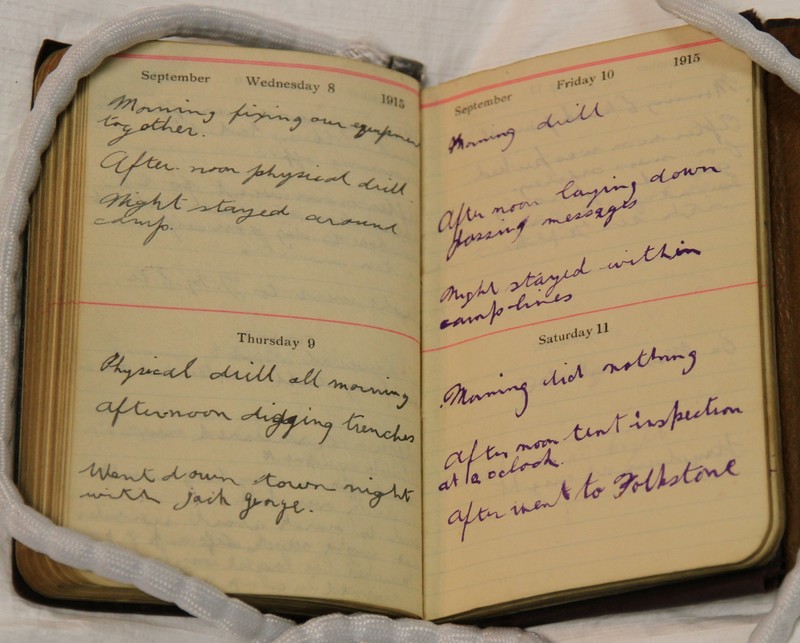 September Wednesday 8 1915
Morning fixing our equipmen
together.
After noon physical drill.
Night stayed around
camp.
Thursday 9
Physical drill all morning
afternoon digging trenches
Went down town night
with jack george.
September Friday 10 1915
Morning drill
After noon laying down
passing messages
Night stayed within
camp lines
Saturday 11
Morning did nothing
After noon tent inspection
at oclock.
After went to Folkstone